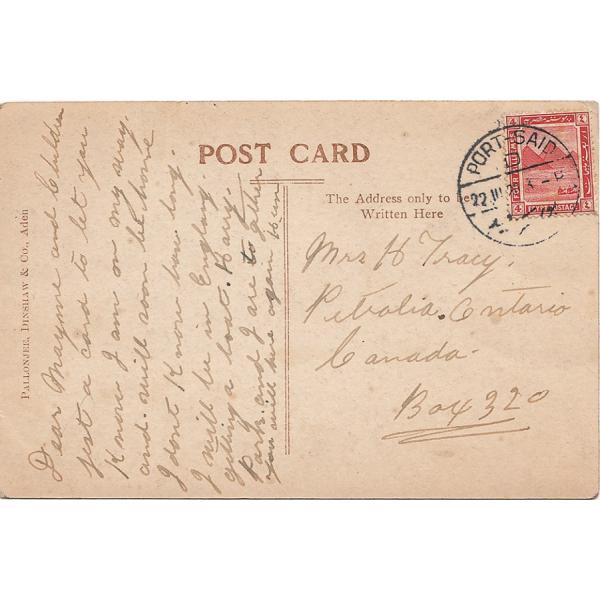 POST CARD
The Address only to be
Written Here
PALLONJEE, DINSHAW & CO., Aden
Dear Mayme and Children
just a card to let you
Know I am on my way.
and will soon be home
I dont Know how long
I will be in England
getting a boat. Harry
Park and I are to gether
you will here again soon
Mrs H Tracy.
Petrolia. Ontario
Canada.
Box 320
PORT-SAID
22 III